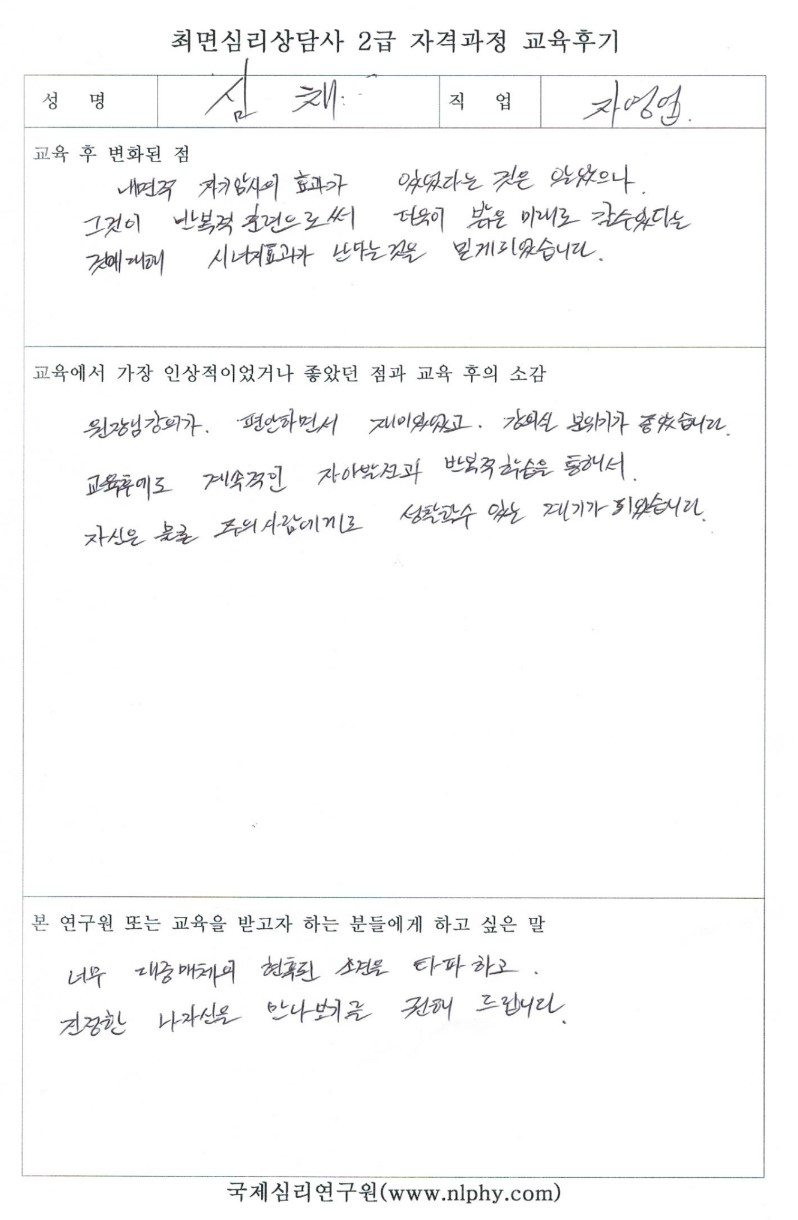 최면심리상담사 2급 자격과정 교육후기
성 명 심 채 직 업 자영업.
교육 후 변화된 점
내면적 자기암시의 효과가 있었다는 것은 알았으나.
그것이 반복적 훈련으로써 더욱이 밝은 미래로 갈수있다는
것에대해 시너지효과가 난다는것을 믿게되었습니다.
교육에서 가장 인상적이었거나 좋았던 점과 교육 후의 소감
원장님강의가. 편안하면서 재미있었고. 강의실 분위기가 좋았습니다.
교육후에도 계속적인 자아발전과 반복적학습을 통해서.
자신은 물론 주의사람에게로 성찰할수 있는 계기가 되었습니다.
본 연구원 또는 교육을 받고자 하는 분들에게 하고 싶은 말
너무 대중매체의 현혹된 소견을 타파하고.
진정한 나자신을 만나보기를 권해 드립니다.
국제심리연구원(www.nlphy.com)